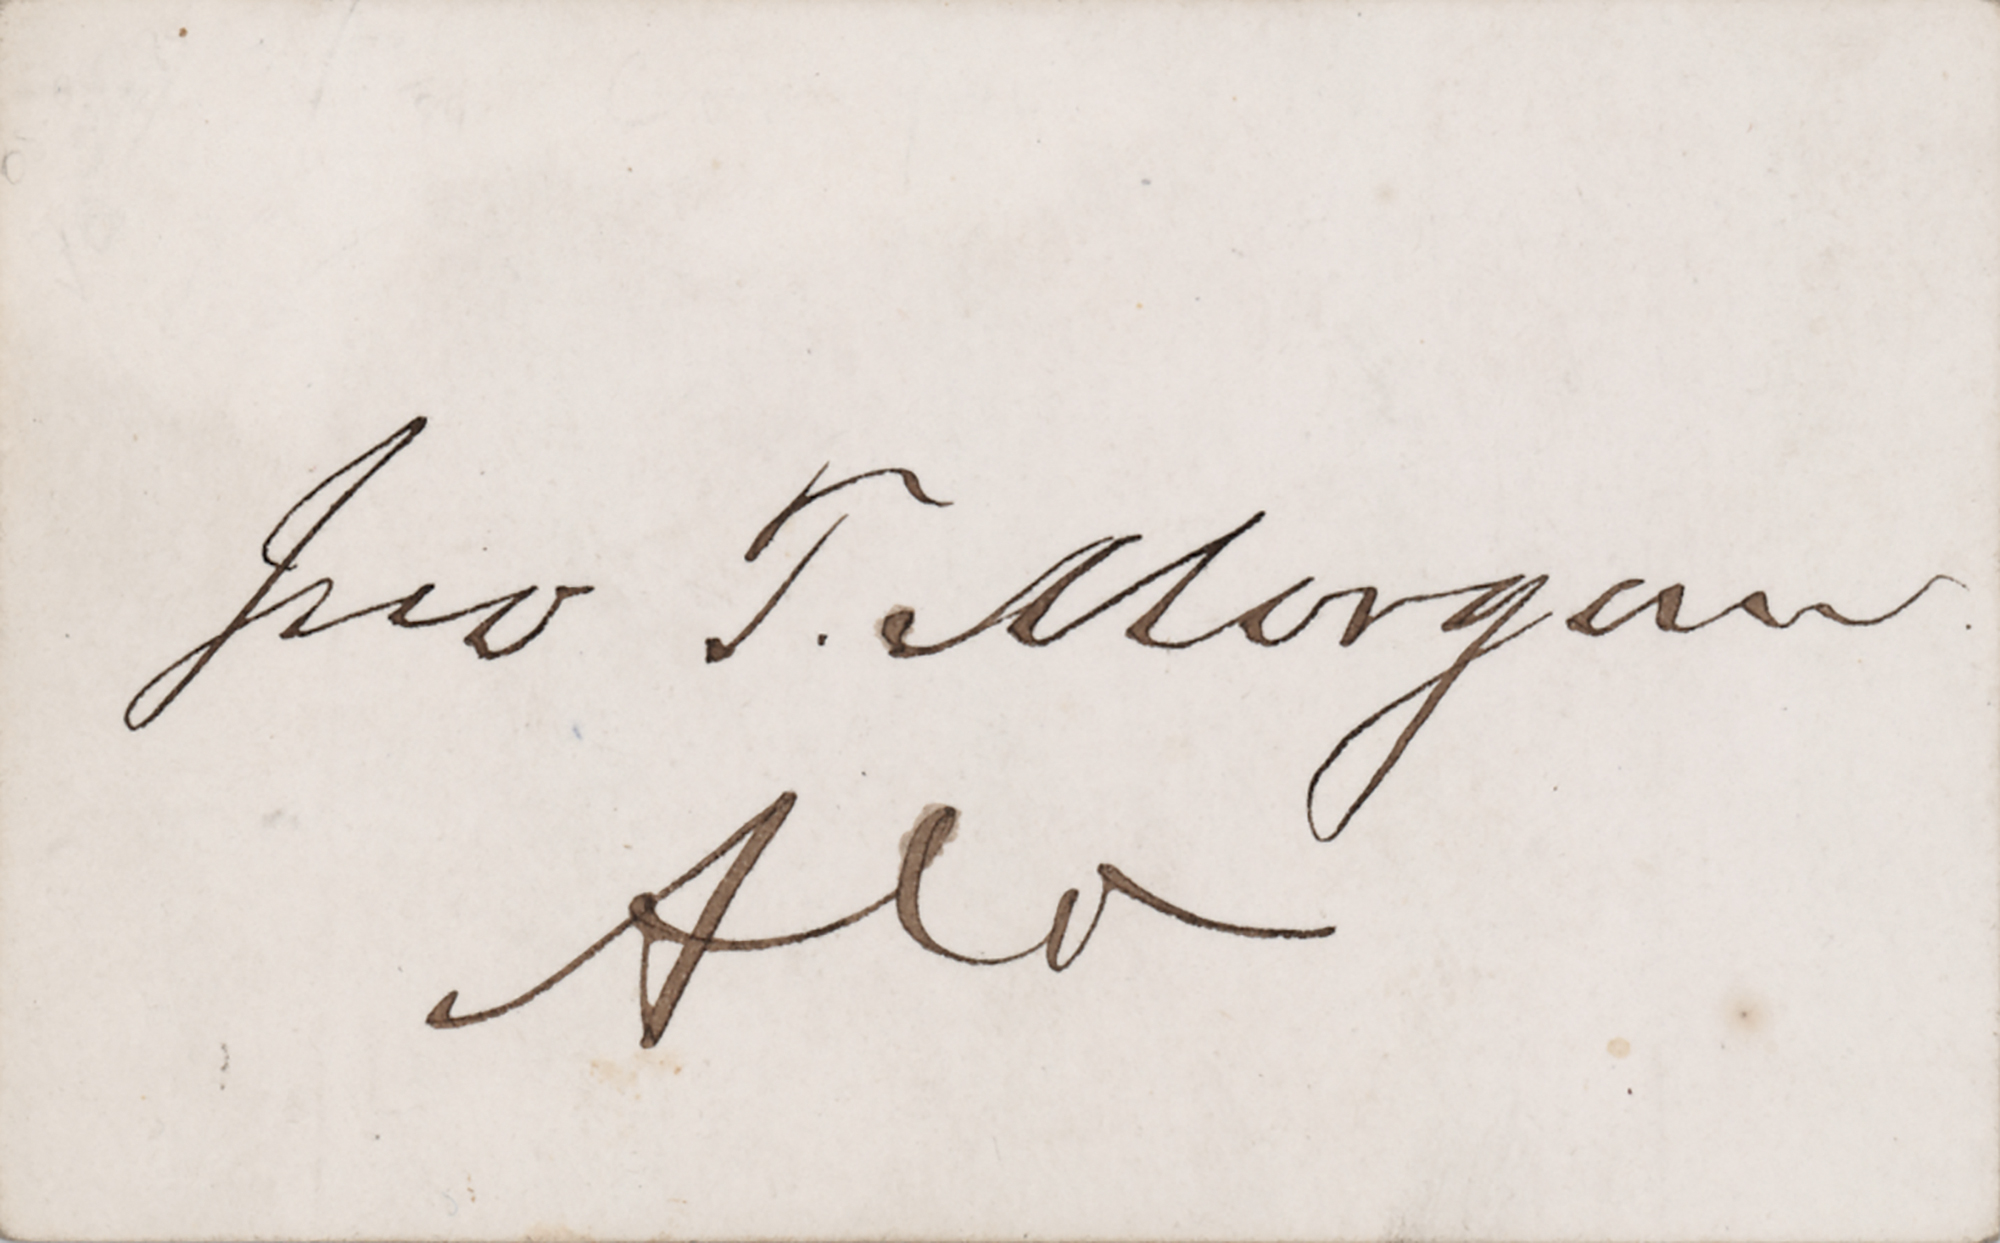 Jno T. Morgan
Ala